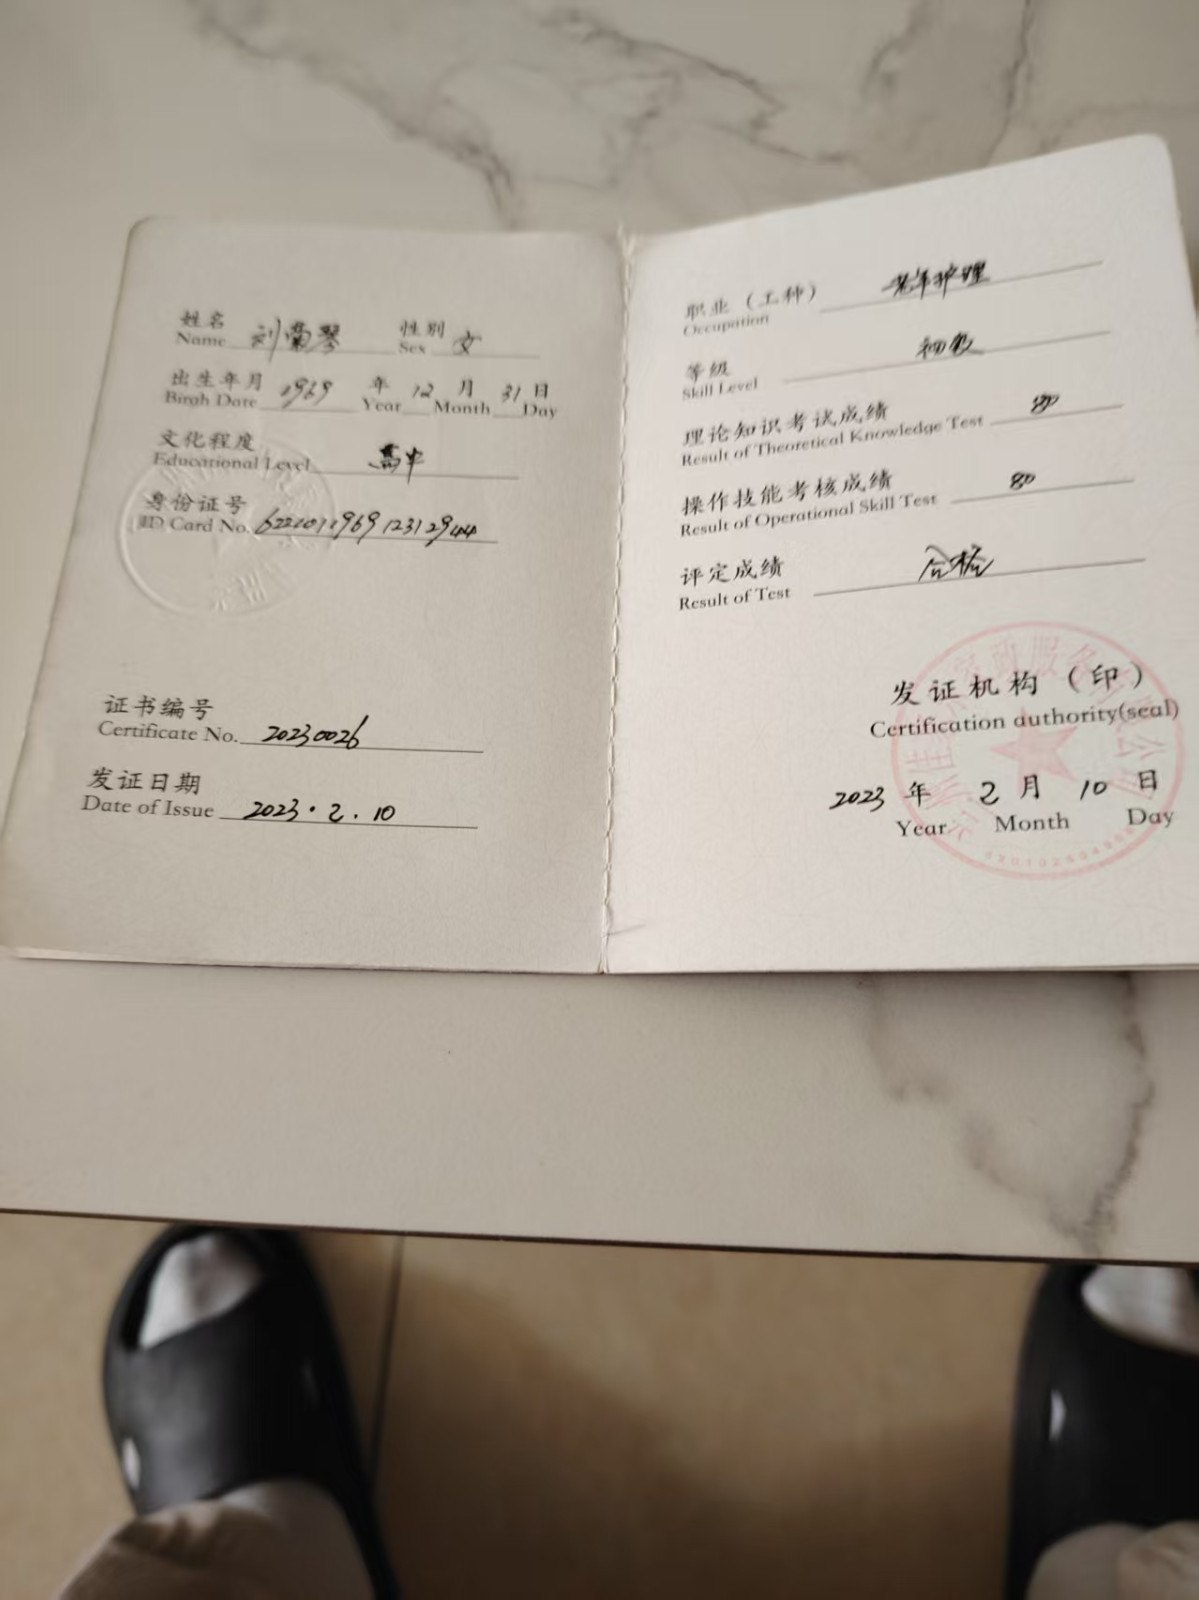 姓名 刘菊琴 性别 女
Name Sex
出生年月 1969 年 12 月 31 日
Birgh Date Year Month Day
文化程度 高中
Educational Level
身份证号
ID Card No. 622201196912312944
证书编号
Certificate No. 20230026
发证日期
Date of Issue 2023.2.10
职业（工种） 老年护理
Occupation
等级 初级
Skill Level
理论知识考试成绩 80
Result of Theoretical Knowledge Test
操作技能考核成绩 80
Result of Operational Skill Test
评定成绩 合格
Result of Test
发证机构（印）
Certification authority(seal)
2023 年 2 月 10 日
Year Month Day